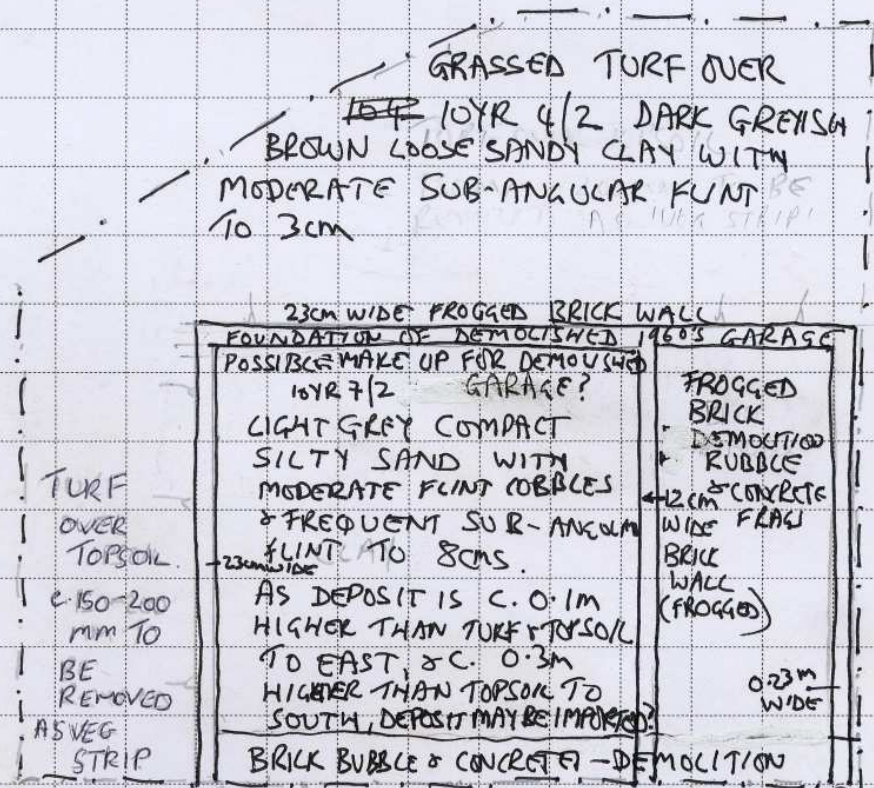 GRASSED TURF OVER
10YR 4/2 DARK GREYISH
BROWN LOOSE SANDY CLAY WITH
MODERATE SUB-ANGULAR FLINT
TO 3cm
23cm WIDE FROGGED BRICK WALL
FOUNDATION OF DEMOLISHED 1960'S GARAGE
POSSIBLE MAKE UP FOR DEMOLISHED
10YR 7/2 GARAGE?
LIGHT GREY COMPACT
SILTY SAND WITH
MODERATE FLINT COBBLES
& FREQUENT SUB-ANGULAR
FLINT TO 8cms.
23cm WIDE
AS DEPOSIT IS C. 0.1m
HIGHER THAN TURF & TOPSOIL
TO EAST, & C. 0.3m
HIGHER THAN TOPSOIL TO
SOUTH, DEPOSIT MAY BE IMPORTED?
FROGGED
BRICK
DEMOLITION
RUBBLE
& CONCRETE
FRAGS
12cm
WIDE
BRICK
WALL
(FROGGED)
0.23m
WIDE
TURF
OVER
TOPSOIL
c. 150-200
mm TO
BE
REMOVED
AS VEG
STRIP
BRICK BUBBLE & CONCRETE - DEMOLITION